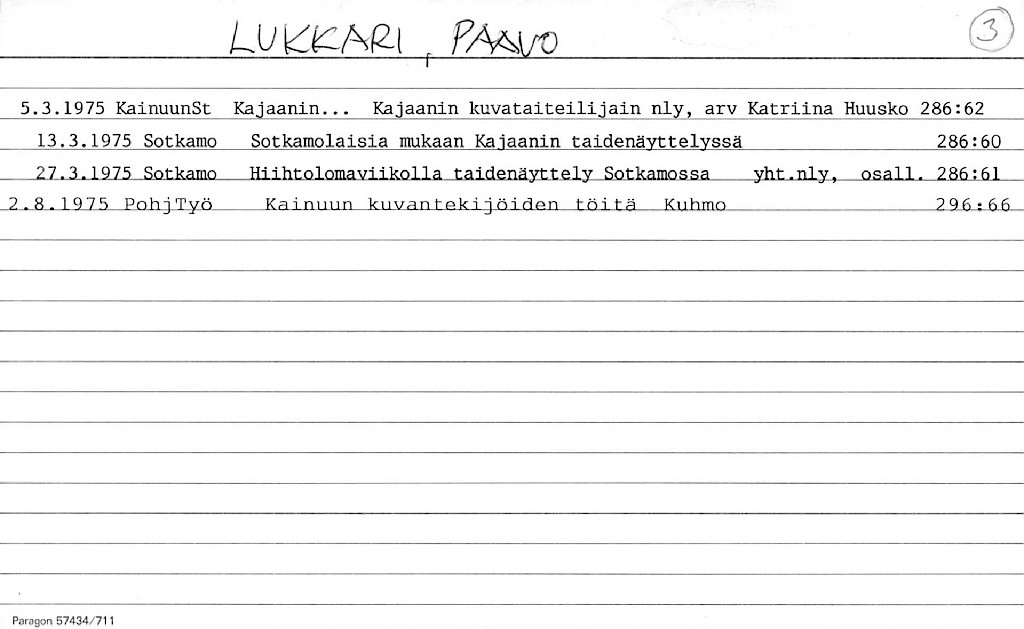 LUKKARI, PAAVO 3
5.3.1975 KainuunSt Kajaanin... Kajaanin kuvataiteilijain nly, arv Katriina Huusko 286:62
13.3.1975 Sotkamo Sotkamolaisia mukaan Kajaanin taidenäyttelyssä 286:60
27.3.1975 Sotkamo Hiihtolomaviikolla taidenäyttely Sotkamossa yht.nly, osall. 286:61
2.8.1975 PohjTyö Kainuun kuvantekijöiden töitä Kuhmo 296:66
Paragon 57434/711